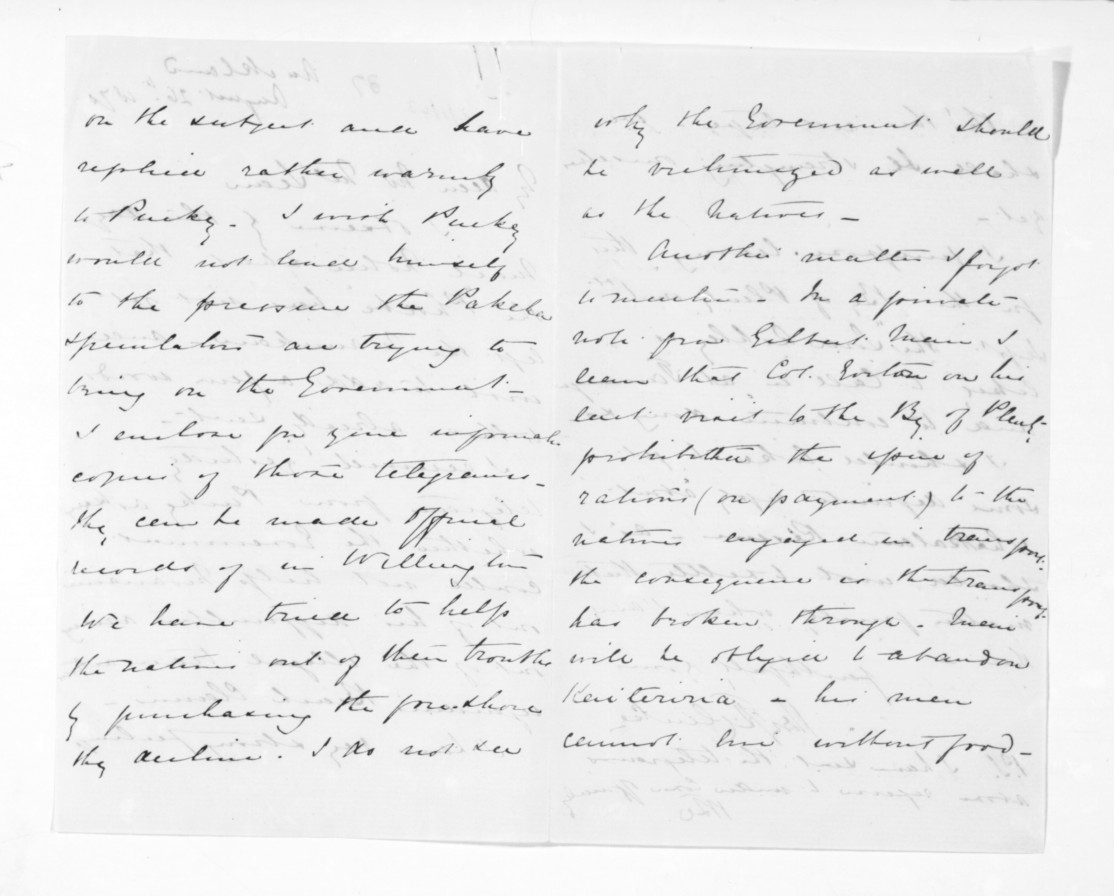 on the subject and have
replied rather warmly
to Puckey. I wish Puckey
would not lend himself
to the pressure the Pakeha
speculators are trying to
bring on the Government -
I enclose for your informatn
copies of those telegrams -
They can be made official
records of in Wellington
We have tried to help
the natives out of their trouble
by purchasing the foreshore
they decline. I do not see
why the Government should
be victimized as well
as the Natives -
Another matter I forgot
to mention - In a private
note from Gilbert Mair I
learn that Col. on his
last visit to the By. of Plenty
prohibited the issue of
rations (on payment) to the
natives engaged in transport.
the consequence is the transport
has broken through - Mair
will be obliged to abandon
Kaiteriria - his men
cannot live without food -